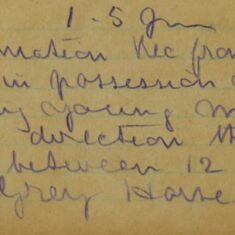 1-5 Jun
mation Rec from
in possession
young
direction th
between 12
Grey Horse